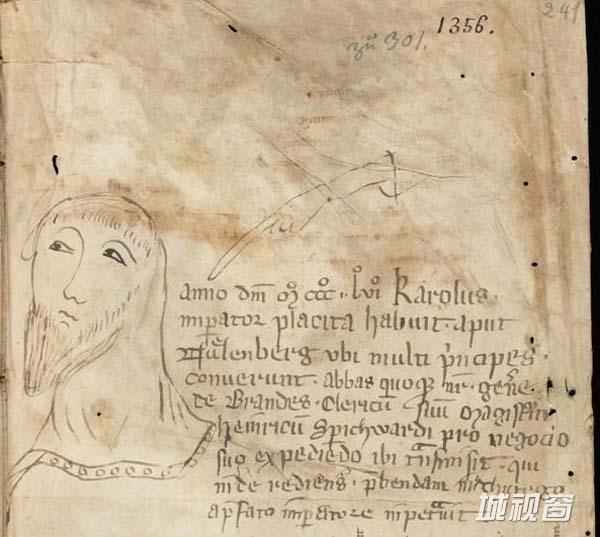 241
1356.
zu 301.
anno dm̄ m̊ cccº · lviº Karolus ·
imperator placita habuit · aput
Nůlenberg vbi multi p̄ncipes ·
converunt · abbas quoque nr̄
de Brandes · Clericū suū magistrū
heinricū Spichwardi pro negocio
suo expediēdo ibi t̄nsmisit · qui
inde rediens · p̄bendam
a p̄fato imperatore inpetravit
城视窗